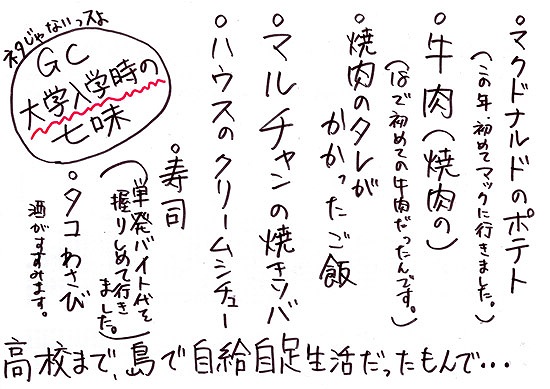 ネタじゃないっスよ
GC
大学入学時の
七味
•マクドナルドのポテト
(この年、初めてマックに行きました。)
•牛肉(焼肉の)
(18で初めての牛肉だったんです。)
•焼肉のタレが
かかったご飯
•マルチャンの焼きソバ
•ハウスのクリームシチュー
•寿司
(単発バイト代を
握りしめて行き
ました。)
•タコわさび
酒がすすみます。
高校まで、島で自給自足生活だったもんで…